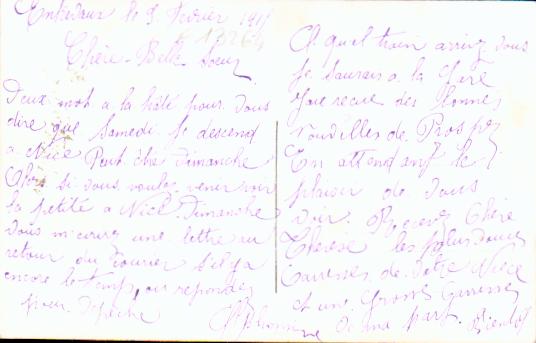 Entrevaux le 9 Fevrier 191
Chère Belle Soeur
Deux mot a la hâte pour vous
dire que Samedi Je descend
a Nice Peut être dimanche
si vous voulez venir voir
la petite a Nice. Dimanche
vous m'ecrirez une lettre au
retour du Courier s'il y a
encore le temp, ou repondez
par depeche
A quel train arrivez vous
Je serais a la Gare
J'ai recue des bonnes
nouvelles de Prosper
En attendant le
plaisir de vous
voir Recevez Chère
Therese les plus douces
Carresses de votre Niece
et une Grosse Carresse
de ma part.